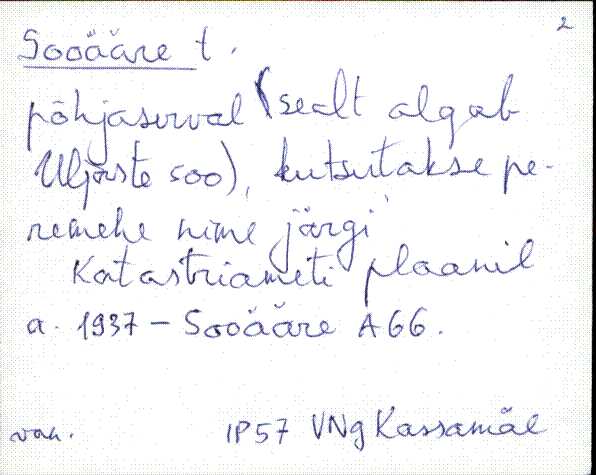 2
Sooääre t.
põhjaserval (sealt algab
Uljaste soo), kutsutakse pe-
remehe nime järgi
Katastriameti plaanil
a. 1937 – Sooääre A66.
van. IP57 VNg Kassamäe